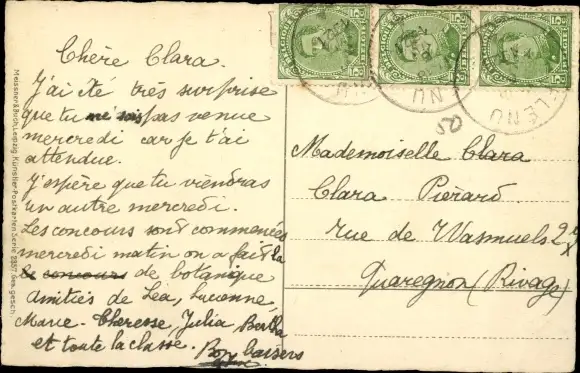 Chère Clara.
J'ai été très surprise
que tu pas venue
mercredi car je t'ai
attendue.
J'espère que tu viendras
un autre mercredi.
Les concours sont commencés
mercredi matin on a fait la
le concours de botanique
Amitiés de Léa, Lucienne,
Marie. Theresse, Julia, Bertha
et toute la classe. Bons baisers
50
Mademoiselle Clara
Clara Piérard
rue de Wasmuels
Quaregnon (Rivage)
Meissner & Buch, Leipzig Künstler-Postkarten-Serie ges. gesch.
BELGIQUE
BELGIË